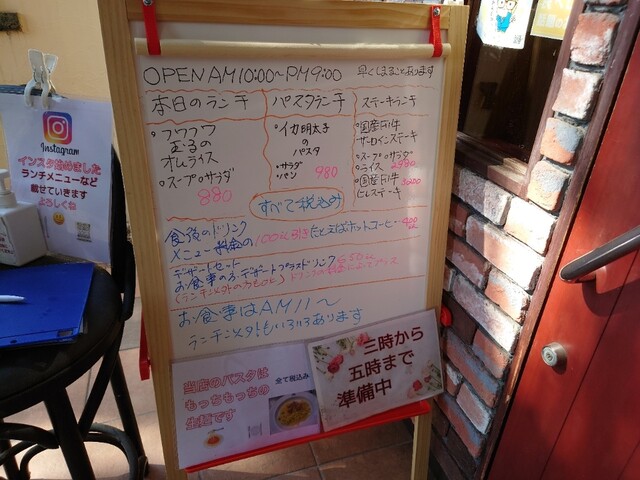 OPEN AM10:00~PM9:00 早くしまることあります
本日のランチ
・フワフワ
オムライス
・スープ・サラダ
880
パスタランチ
・イカ明太子
の
パスタ
・サラダ
・パン 980
ステーキランチ
・国産牛
サーロインステーキ
・スープ・サラダ
・ライス
・国産牛
ヒレステーキ
すべて税込み
食後のドリンク
メニュー料金の100円引き たとえばホットコーヒー
デザートセット
お食事の方、デザートプラスドリンク
お食事はAM11~
ランチ以外もいろいろあります
当店のパスタは
もっちもっちの
生麺です
全て税込み
三時から
五時まで
準備中
Instagram
インスタ始めました
ランチメニューなど
載せていきます
よろしくね